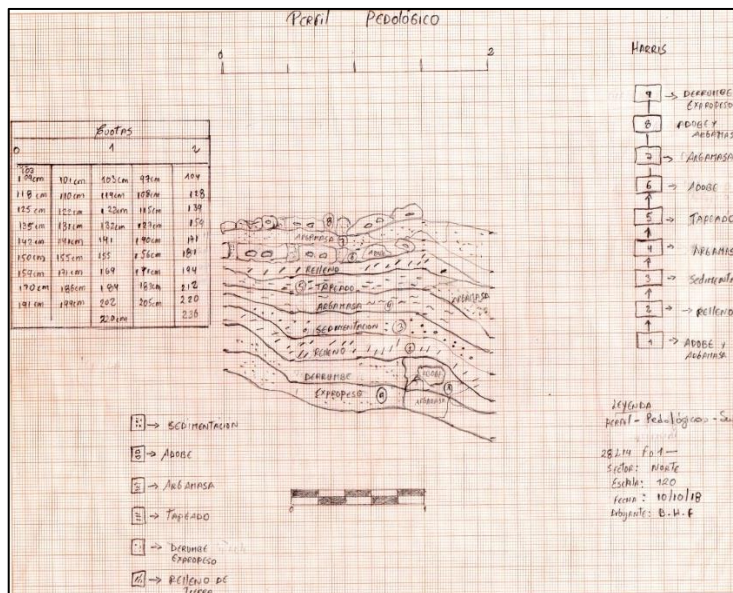 PERFIL PEDOLÓGICO
0 2
HARRIS
9 → DERRUMBE
EXPROPESO
8 ADOBE Y
ARGAMASA
7 → ARGAMASA
6 → ADOBE
5 → TAPEADO
4 → ARGAMAS
3 → Sedimenta
2 → RELLENO
1 → ADOBE Y
ARGAMASA
CUOTAS
0 1 2
101cm 103cm 97cm 104
118cm 110cm 114cm 108cm 128
125cm 122cm 123cm 115cm 139
135cm 131cm 132cm 127cm 150
142cm 141cm 141 140cm 171
150cm 155cm 155 156cm 181
159cm 171cm 169 171cm 194
170cm 186cm 184 183cm 212
191cm 199cm 202 205cm 220
220cm 236
ARGAMASA
RELLENO
5 TAPEADO
ARGAMASA
ARGAMASA
SEDIMENTACION 3
RELLENO
DERRUMBE
EXPROPESO
ADOBE
ARGAMASA
→ SEDIMENTACION
→ ADOBE
→ ARGAMASA
→ TAPEADO
→ DERUMBE
EXPROPESO
→ RELLENO DE
LEYENDA
PERFIL - Pedológico - Su
28L14 F01 —
SECTOR: NORTE
Escala: 120
FECHA: 10/10/18
Dibujante: B.H.F